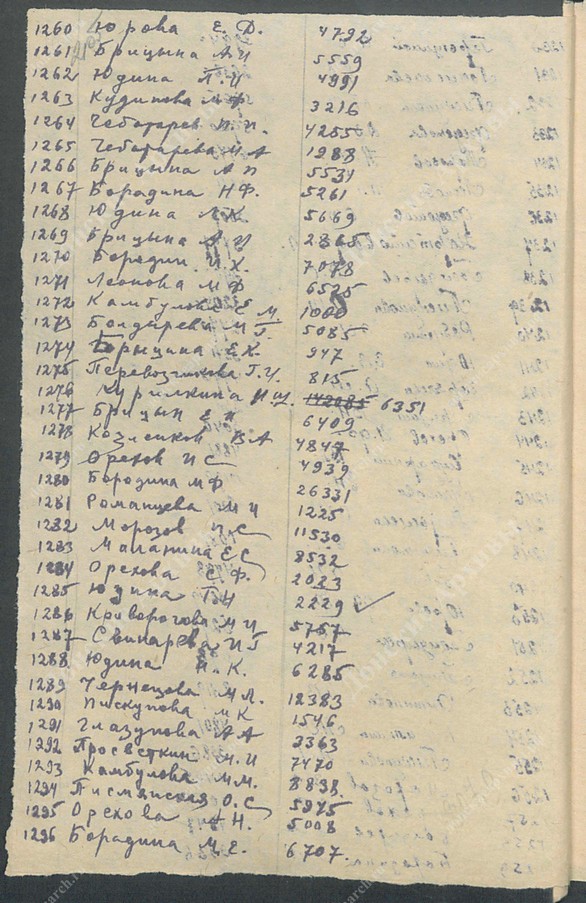 1260 Юрова Е. Д. 4792
1261 Брицына А И 5559
1262 Юдина Л. И 4991
1263 Кудинова М Ф. 3216
1264 Чеботарев И. И. 4255
1265 Чеботарева М А 1988
1266 Брицына А П 5531
1267 Борадина Н Ф. 5261
1268 Юдина Л. К. 5669
1269 Брицына А И 2865
1270 Бородин И. Х. 7078
1271 Леонова М Ф 6525
1272 Камбулова Е М. 1000
1273 Болдарева М Г. 5085
1274 Борыцина Е К. 947
1275 Перевозчикова Г. И. 815
1276 Курилкина И Ш. 142085 6351
1277 Брицын Е П 6409
1278 Козленков В А 4847
1279 Орехов И С 4939
1280 Бородина М Ф 26331
1281 Романцева М И 1225
1282 Морозов И. С 11530
1283 Маланина Е С 8532
1284 Орехова Е Ф. 2023
1285 Юдина Т Н 2229 ✓
1286 Криворогова М И 5757
1287 Свинарева И Г 4217
1288 Юдина Н. К. 6285
1289 Чернецова М Л. 12383
1290 Пискунова М К 1546
1291 Глазунова А А 2363
1292 Просветкин М. И 7470
1293 Камбулова М. М. 8838.
1294 Письмянская О. С 5975
1295 Орехова А Н. 5008
1296 Борадина М. Е. 6707.